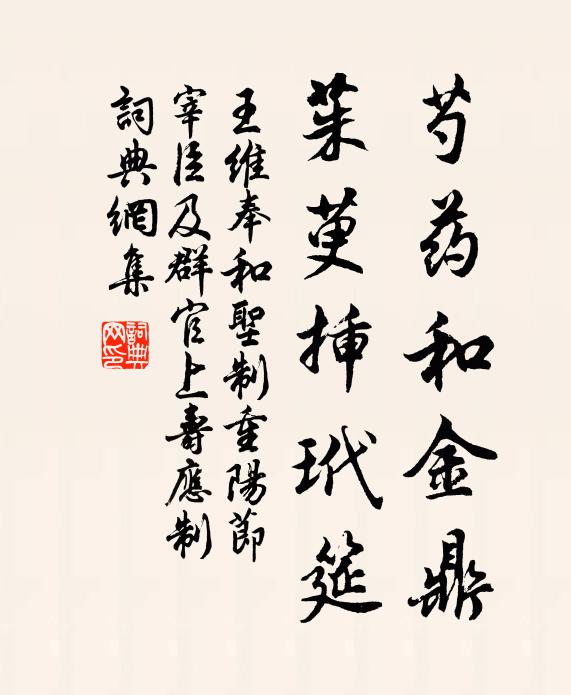 芍药和金鼎
茱萸插玳筵
王維奉和聖制重陽節
宰臣及群官上壽應制
詞典網集
詞典
网印